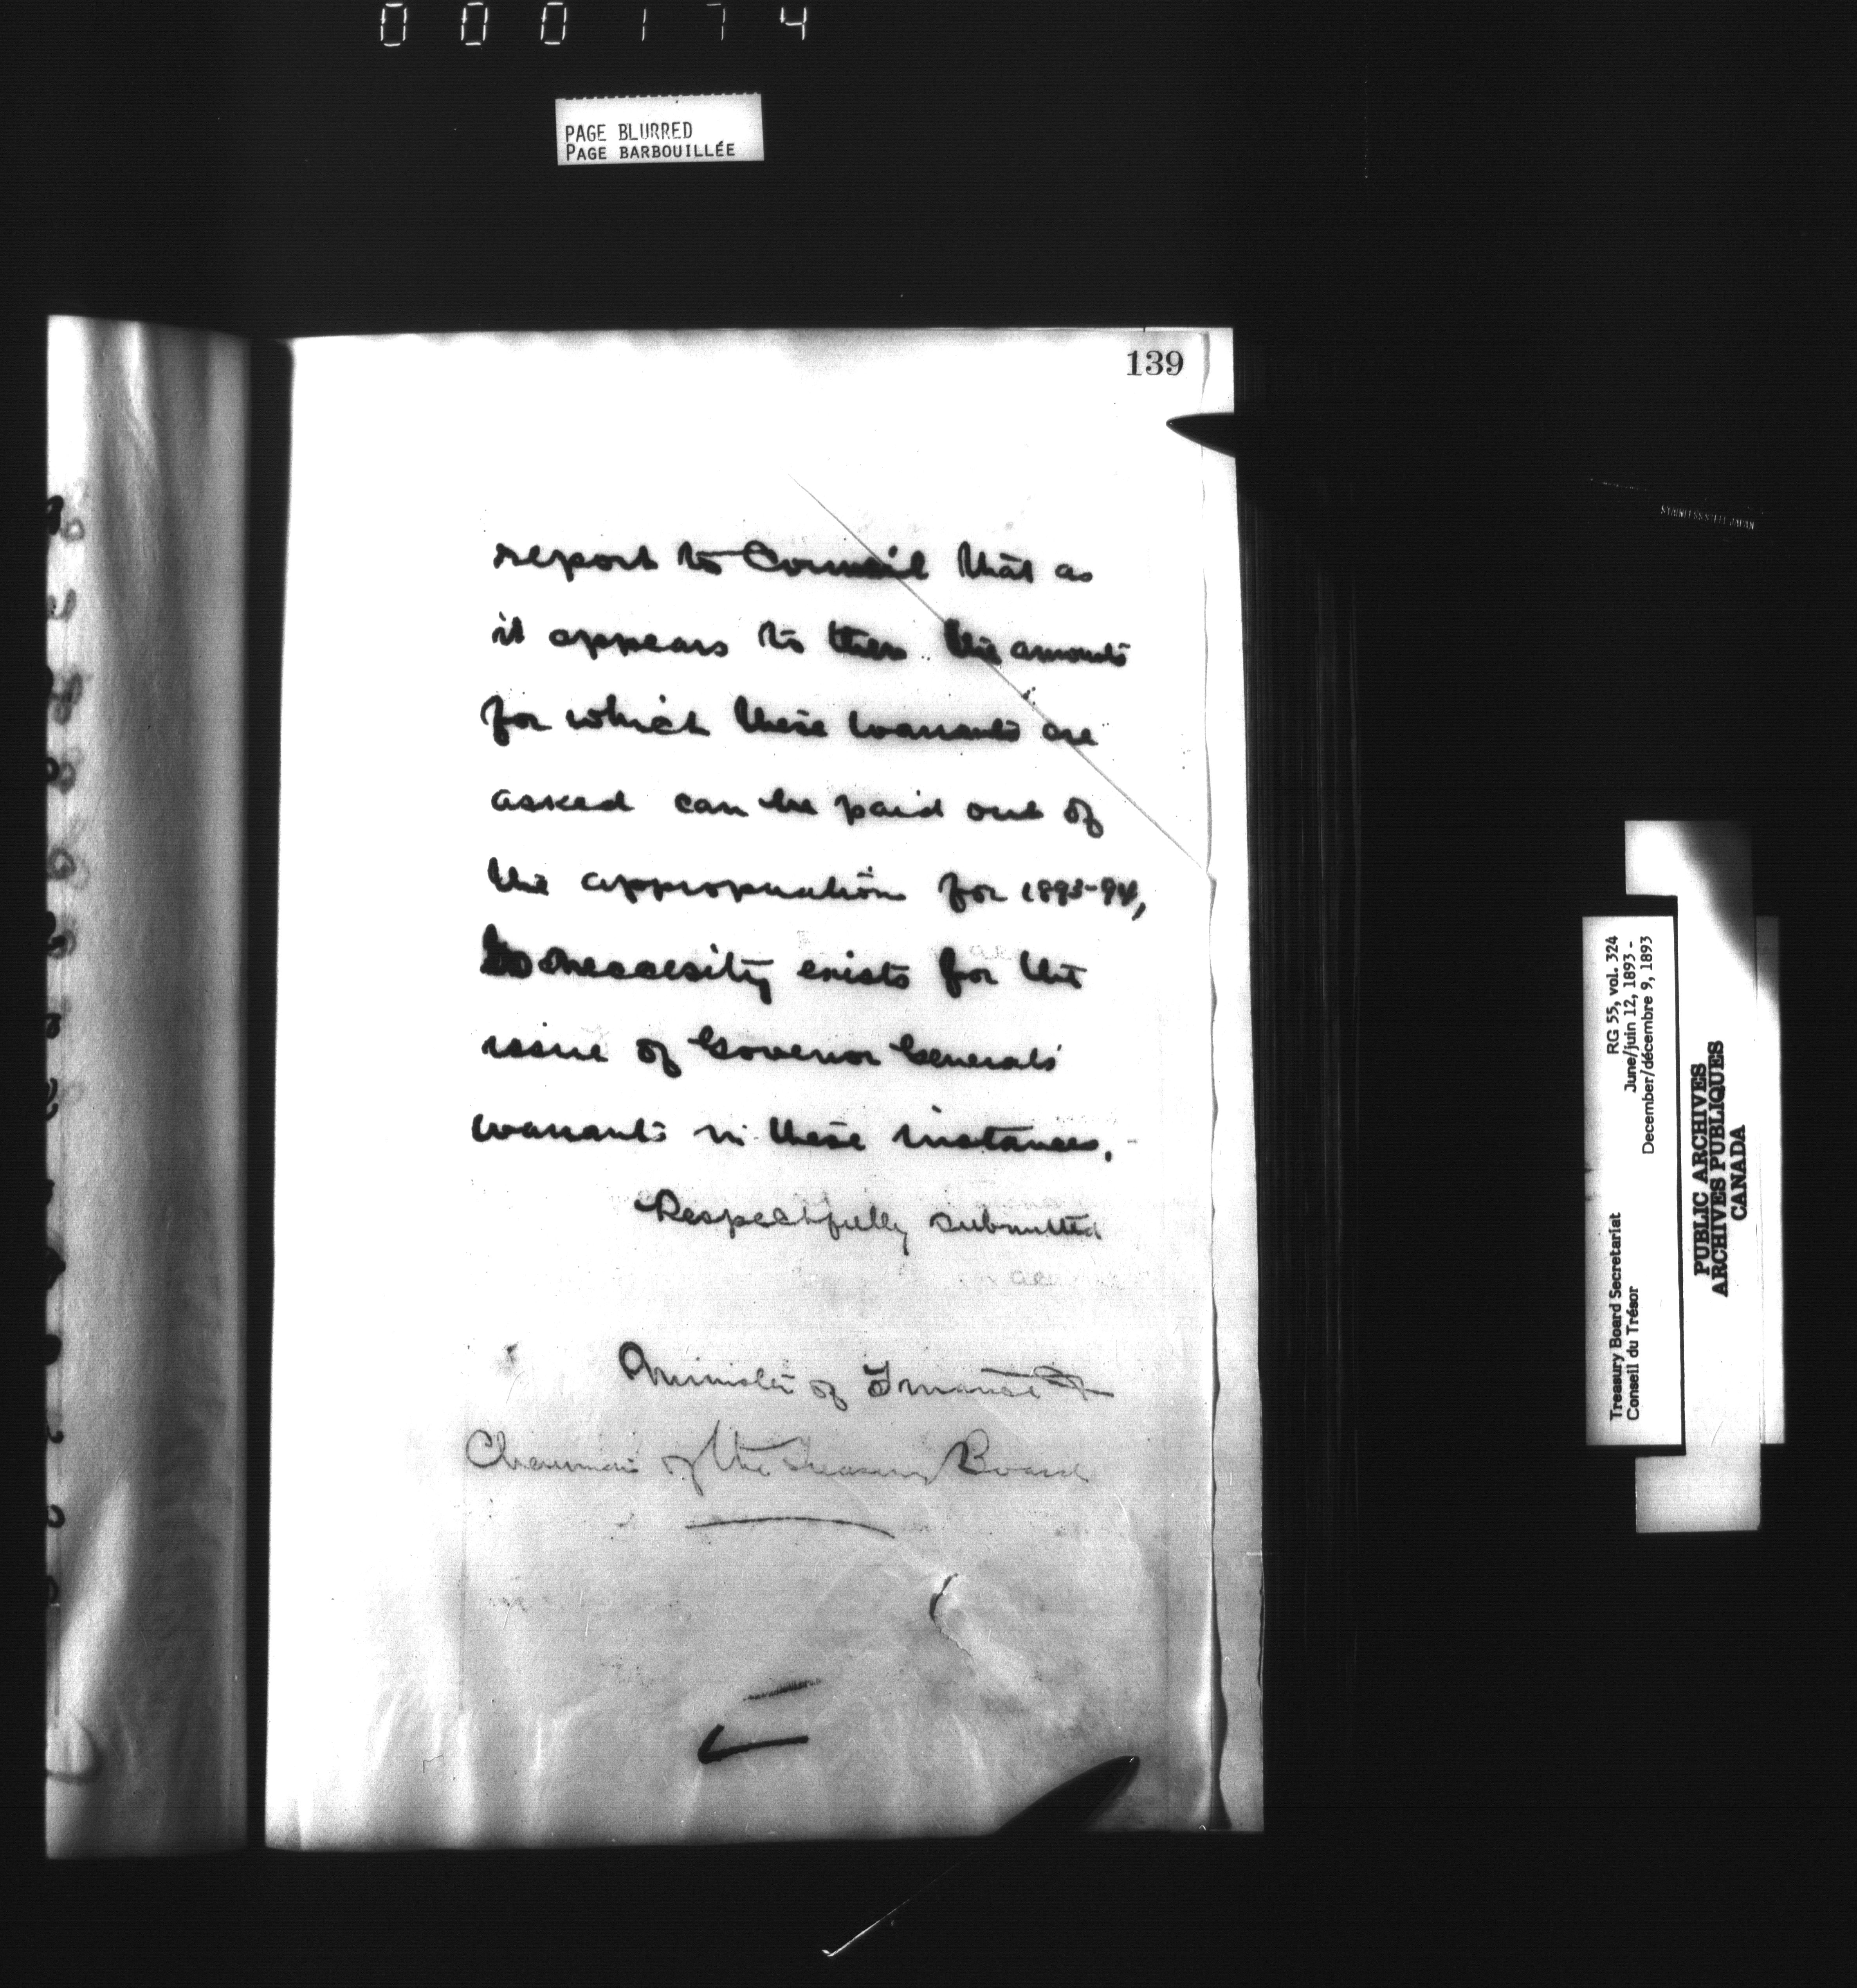 000174
PAGE BLURRED
PAGE BARBOUILLÉE
139
report to Council that as
it appears to them the amounts
for which these warrants are
asked can be paid out of
the appropriation for 1893-94,
no necessity exists for the
issue of Governor General's
warrants in these instances.
Respectfully submitted
Minister of Finance &
Chairman of the Treasury Board
STAINLESS STEEL JAPAN
Treasury Board Secretariat RG 55, vol. 324
Conseil du Trésor June/juin 12, 1893 -
December/décembre 9, 1893
PUBLIC ARCHIVES
ARCHIVES PUBLIQUES
CANADA